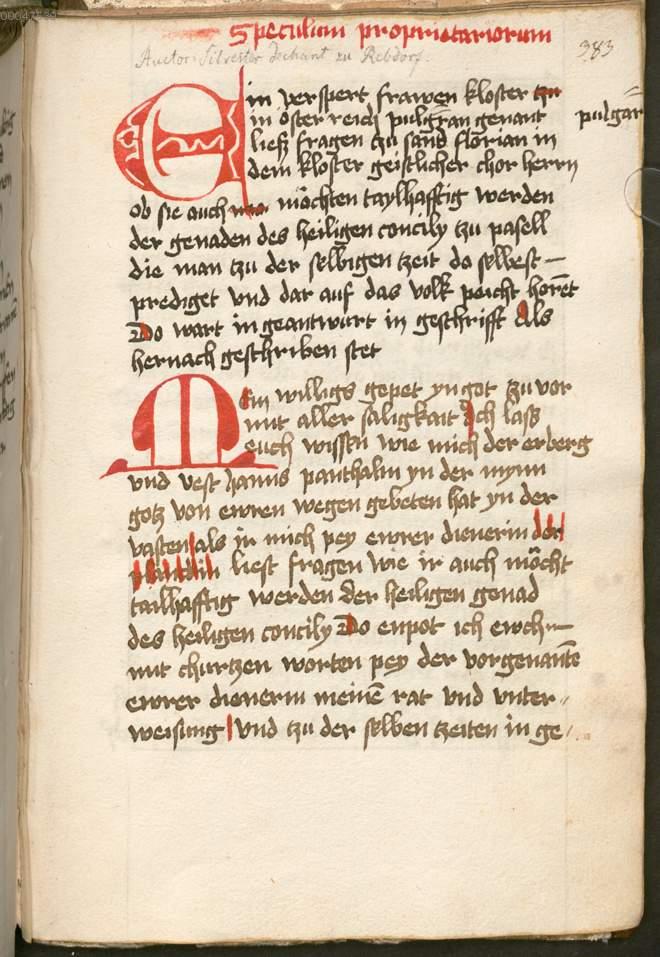 Speculum proprietariorum
383
Auctor: Silvester Dechant zu Rebdorf.
Ein verspert frawen kloster tzu
in öster reich pulgran genant
pulgar
ließ fragen tzu sand florian in
dem kloster geistlicher chor herrn
ob sie auch möchten taylhafftig werden
der genaden des heiligen concily tzu pasell
die man tzu der selbigen tzeit do selbest
prediget vnd dar auf das volk peicht horet
Do wart in geantwurt in geschrifft Als
hernach geschriben stet
Mein willigs gepet yn got tzu vor
mit aller säligkait Ich laß
euch wissen wie mich der erberg
vnd vest hanns panthalin yn der mynn
gotz von ewren wegen gebeten hat yn der
vasten als ir mich pey ewrer dienerin der
liest fragen wie ir auch möcht
tailhafftig werden der heiligen genad
des heiligen concily Do enpot ich ewch
mit churtzen worten pey der vorgenante
ewrer dienerin meine rat vnd vnter
weisung vnd tzu der selben tzeiten in ge